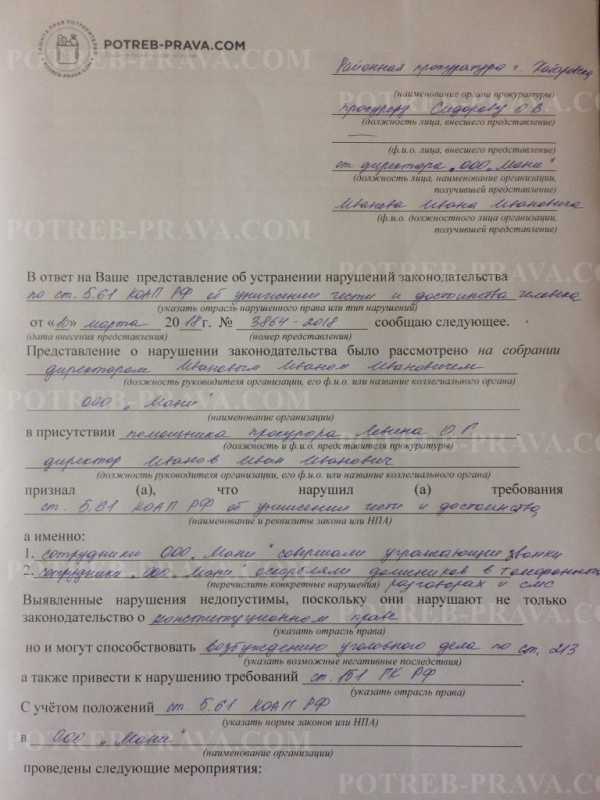 POTREB-PRAVA.COM
Районная прокуратура г. Хабаровск
(наименование органа прокуратуры)
прокурору Сидорову О.В.
(должность лица, внесшего представление)
(ф.и.о. лица, внесшего представление)
от директора „ООО „Мани"
(должность лица, наименование организации,
получившей представление)
Иванова Ивана Ивановича
(ф.и.о. должностного лица организации,
получившей представление)
В ответ на Ваше представление об устранении нарушений законодательства
по ст. 5.61 КОАП РФ об унижении чести и достоинства человека
(указать отрасль нарушенного права или тип нарушений)
от «10» марта 2018 г. № 3864-2018 сообщаю следующее.
(дата внесения представления) (номер представления)
Представление о нарушении законодательства было рассмотрено на собрании
директором Ивановым Иваном Ивановичем
(должность руководителя организации, его ф.и.о. или название коллегиального органа)
ООО „Мани"
(наименование организации)
в присутствии помощника прокурора Левина О.П
(должность и ф.и.о. представителя прокуратуры)
директор Иванов Иван Иванович
(должность руководителя организации, его ф.и.о. или название коллегиального органа)
признал (а), что нарушил (а) требования
ст. 5.61 КОАП РФ об унижении чести и достоинства
(наименование и реквизиты закона или НПА)
а именно:
1. сотрудники ООО „Мани" совершали угрожающие звонки
2. сотрудники ООО „Мани" оскорбляли должников в телефонных
(перечислить конкретные нарушения) разговорах и смс
Выявленные нарушения недопустимы, поскольку они нарушают не только
законодательство о конституционном праве
(указать отрасль права)
но и могут способствовать возбуждению уголовного дела по ст. 213
(указать возможные негативные последствия)
а также привести к нарушению требований ст. 151 ГК РФ.
(указать отрасль права)
С учётом положений ст 5.61 КОАП РФ
(указать нормы законов или НПА)
в ООО „Мани"
(наименование организации)
проведены следующие мероприятия: